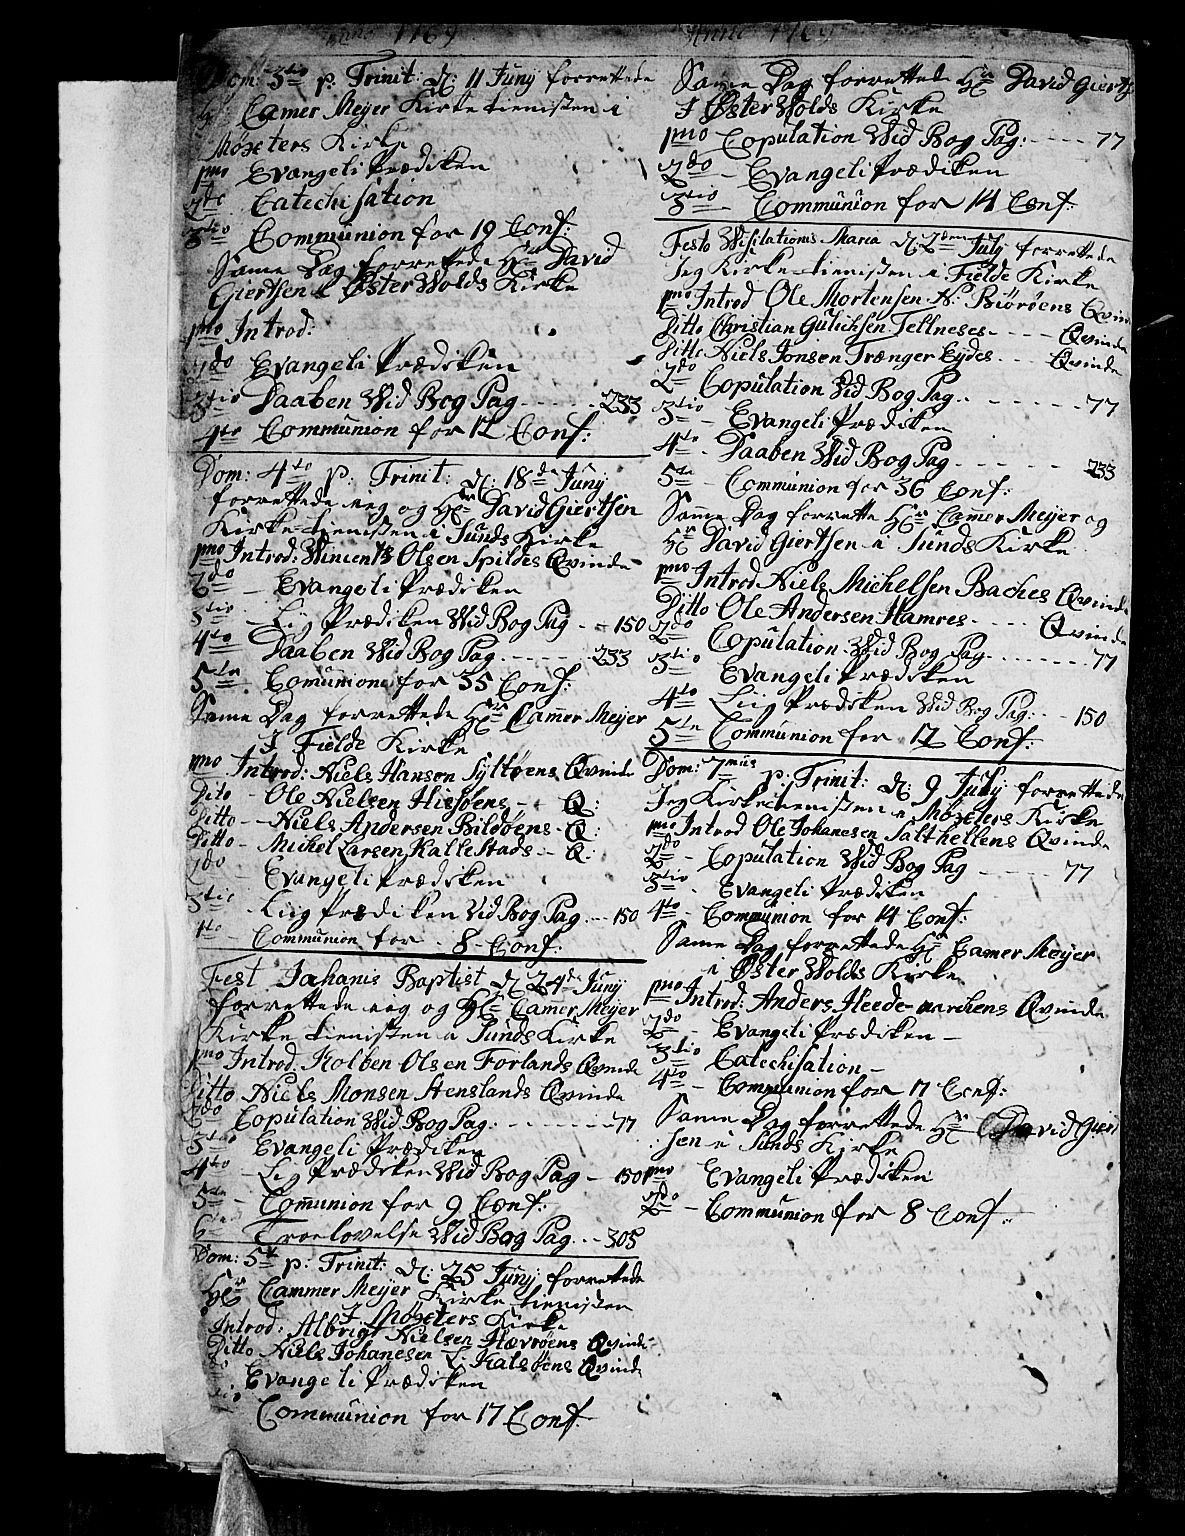 Anno 1769
Dom: 3tio p. Trinit: d: 11 Junÿ forrettede
Hr Camer Meÿer Kirke tienisten i
Møgsters Kirke
pmo Evangeli Prædiken
2do Catechisation
3tio Communion for 19 Conf:
Same Dag forrettede Hr David
Giertsen i Øster Wolds Kirke
pmo Introd:
2do Evangeli Prædiken
3tio Daaben Wid Bog Pag - - - - 233
4to Communion for 12 Conf:
Dom: 4to p. Trinit: d: 18de Junÿ
forrettede ieg og Hr David Giertsen
Kirke-tienisten i Sunds Kirke
pmo Introd: Wincents Olsen Spildes Qvinde
2do - Evangeli Prædiken
3tio - Lig Prædiken Wid Bog Pag - - 150
4to Daaben Wid Bog Pag - - - - - 233
5te - Comunion for 55 Conf:
Same Dag forrettede Hr Camer Meÿer
I Fielde Kirke
pmo Introd: Niels Hansen Syltøens Qvinde
Dito - Ole Nielsen Hisøens - Q:
Ditto - Niels Andersen Bildøens - Q:
Ditto - Michel Larsen Kallestads - Q:
2do - Evangeli Prædiken
3tio - Liig Prædiken Vid Bog Pag - - 150
4to - Communion for - 8 - Conf:
Fest Johanis Baptist d: 24de Junÿ
forrettede ieg og Hr Camer Meÿer
Kirke tienisten i Sunds Kirke
pmo Introd: Kolben Olsen Forlands Qvinde
Ditto Niels Monsen Stenslands Qvinde
2do Copulation Wid Bog Pag - - - - - 77
3tio - Evangeli Prædiken
4to - Lig Prædiken Wid Bog Pag - 150
5te - Comunion for 9 Conf:
6te Troelovelse Wid Bog Pag - - 305
Dom: 5te p: Trinit: d: 25 Junÿ forrettede
Hr Cammer Meÿer Kirke-tienisten
I Møgsters Kirke
Introd: Albrigt Nielsen Hævrøens Qvinde
Ditto Niels Johanesen L: Kalsøens Qvinde
Evangeli Prædiken
Communion for 17 Conf:
Anno 1769
Same Dag forrettede Hr David Gierts
I Øster Wolds Kirke
pmo Copulation Wid Bog Pag: - - - - 77
2do - Evangeli Prædiken
3tio - Communion for 14 Conf:
Festo Wisitationis Maria d: 2den Julÿ forrettede
Jeg Kirke-tienisten i Fielde Kirke
pmo Introd Ole Mortensen N: Biørøens Qvin
Ditto Christian Gulichsen Tellneses - - - - Qvinde
Ditto Niels Jonsen Trænger Eydes - - - Qvinde
2do Copulation Wid Bog Pag. - - - - - 77
3tio - Evangeli Prædiken
4to - Daaben Wid Bog Pag - - - - - 233
5te - Communion for 36 Conf:
Same Dag forrette Hr Camer Meÿer og
Hr David Giertsen i Sunds Kirke
pmo Introd Niels Michelsen Baches Qvinde
Ditto Ole Andersen Hamres - - - - Qvinde
2do - Copulation Wid Bog Pag - - - - - 77
3tio - Evangeli Prædiken
4to - Liig Prædiken Wid Bog Pag: - - 150
5te Communion for 12 Conf:
Dom: 7mus p: Trinit: d: 9 Julÿ forrettede
Jeg Kirke tienisten i Møgsters Kirke
pmo Introd Ole Johanesen Salthellens Qvinde
2do - Copulation Wid Bog Pag - - - - 77
3tio - Evangeli Prædiken
4to - Communion for 14 Conf:
Same Dag forrettede Hr Camer Meÿer
i Øster Wolds Kirke
pmo Introd: Anders Heede-marchens Qvinde
2do - Evangeli Prædiken -
3tio Catechisation -
4to - Communion for 17 Conf:
Same Dag forrettede Hr David Giert
sen i Sunds Kirke
pmo Evangeli Prædiken
2do - Communion for 8 Conf: